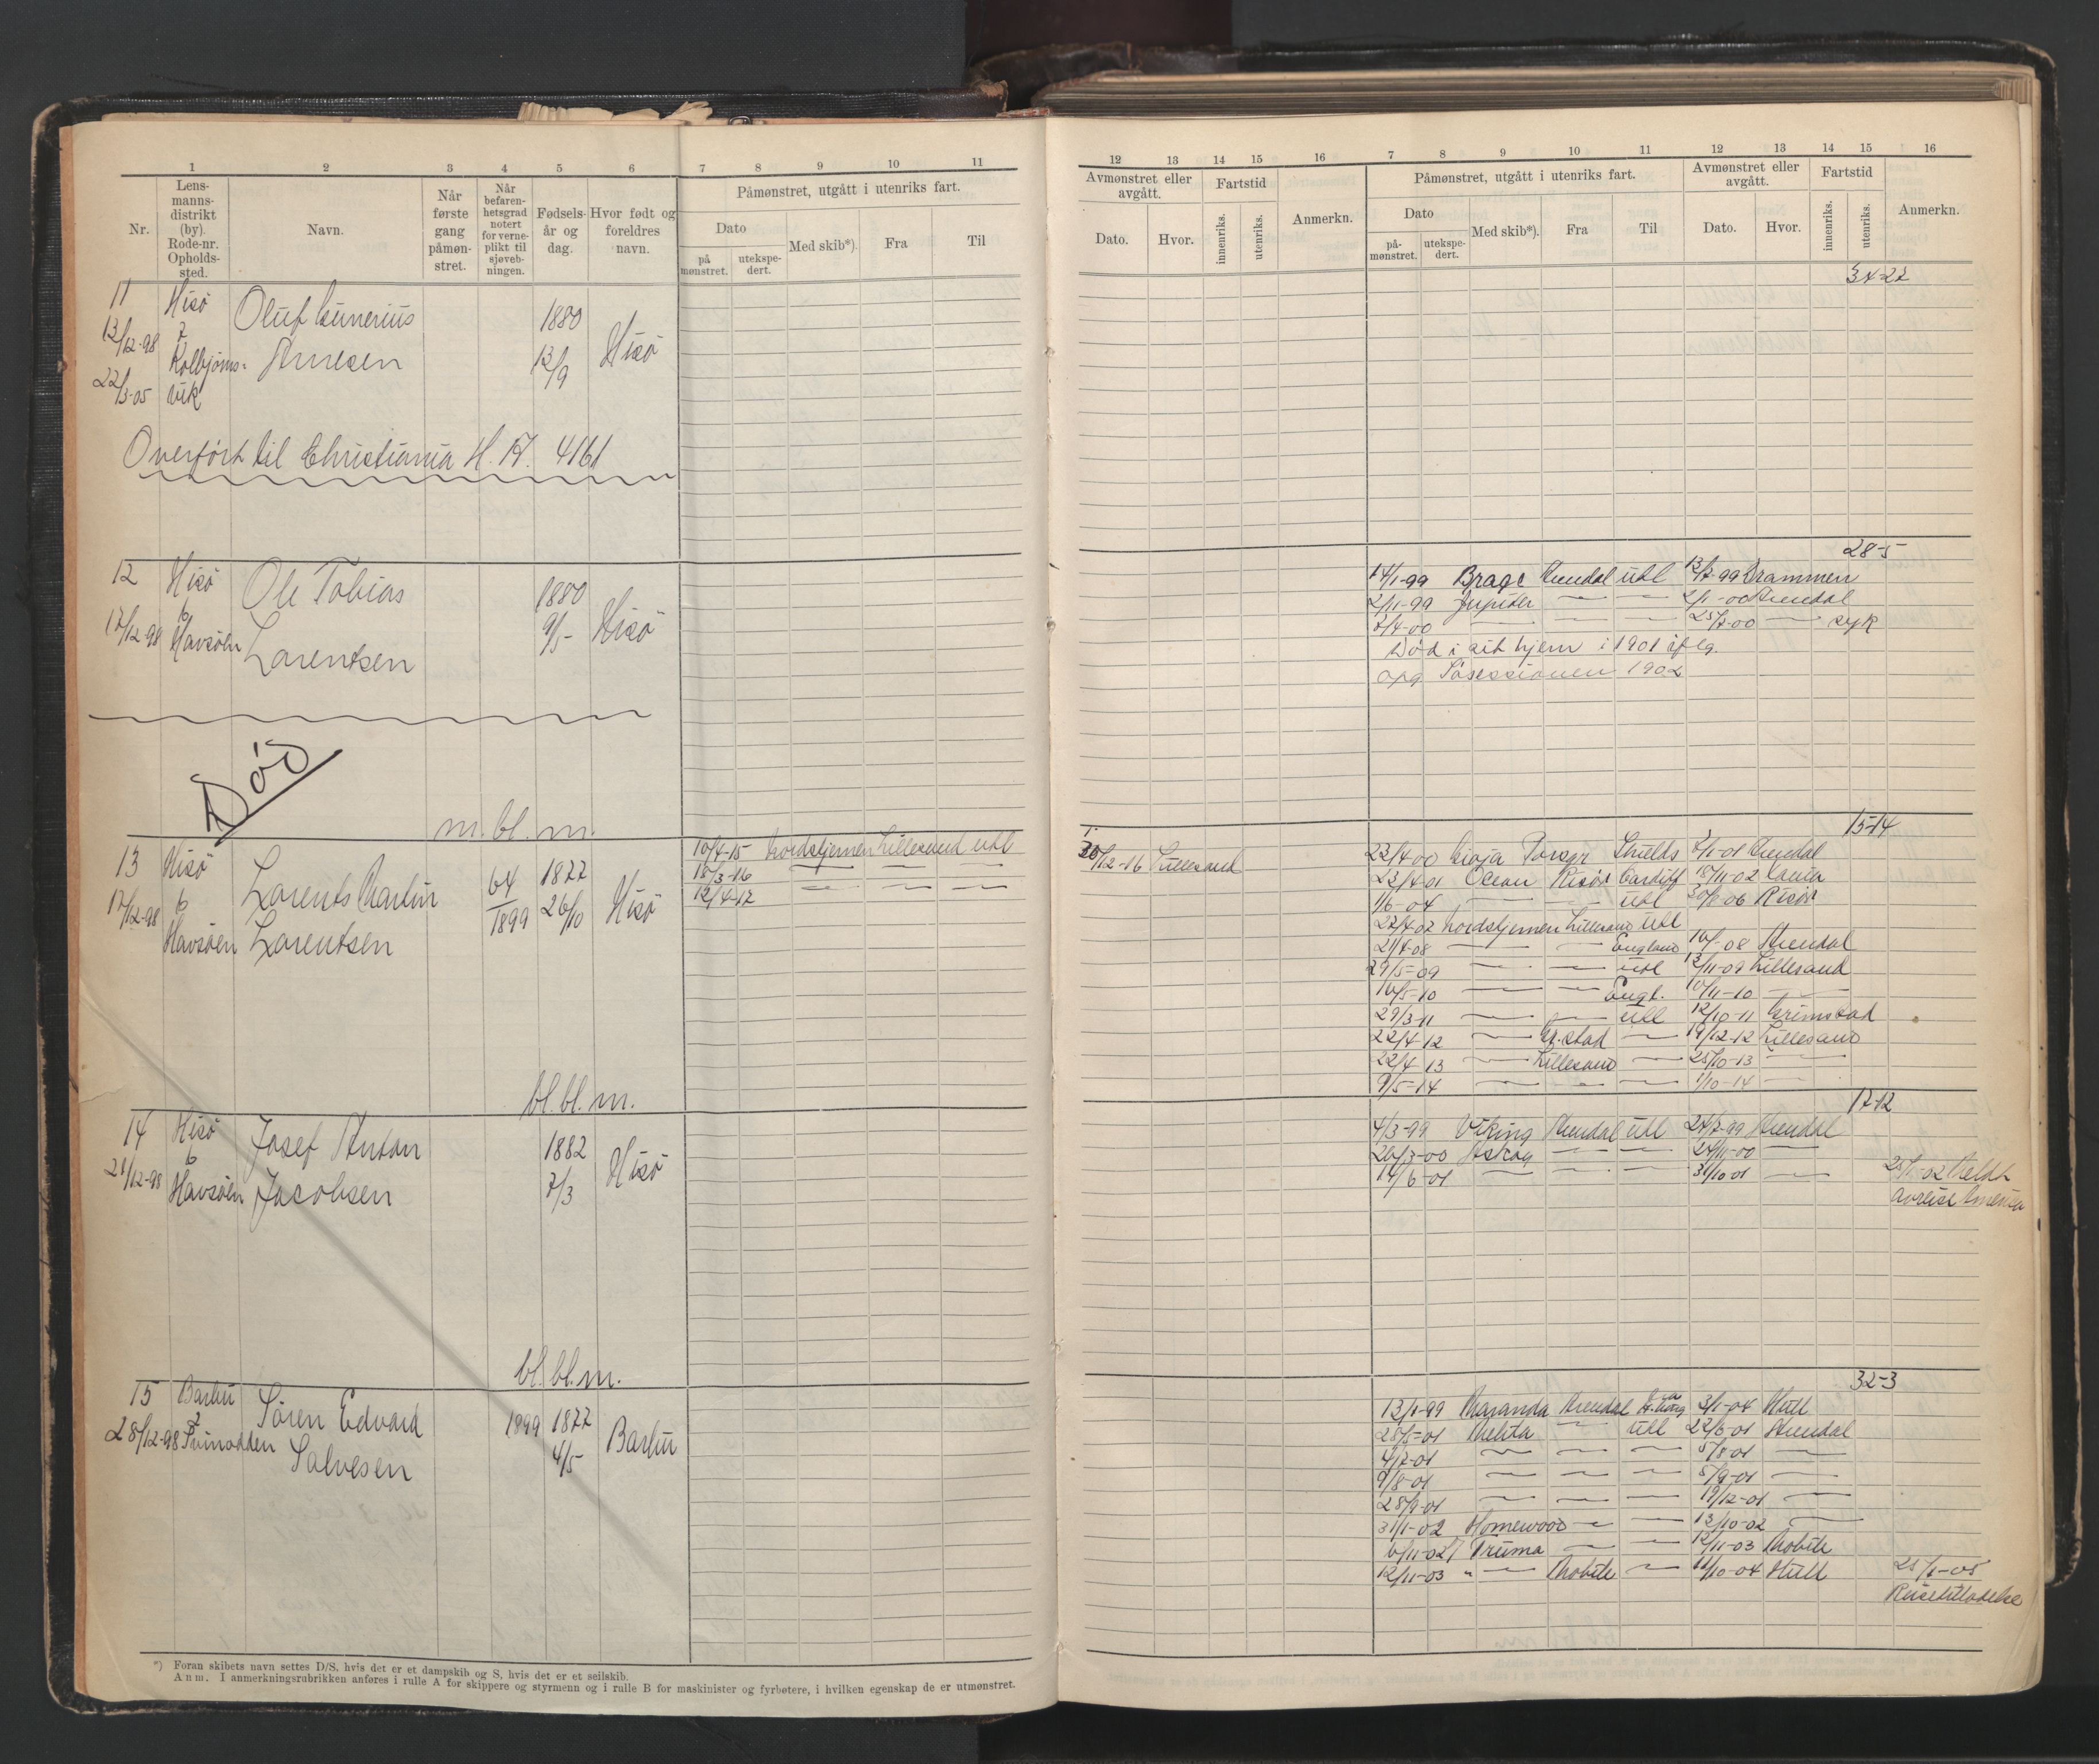 1 2 3 4 5 6 7 8 9 10 11
Nr.
Lens-
manns-
distrikt
(by).
Rode-nr.
Opholds-
sted.
Navn.
Når
første
gang
påmøn-
stret.
Når
befaren-
hetsgrad
notert
for verne-
plikt til
sjøveb-
ningen.
Fødsels-
år og
dag.
Hvor født og
foreldres
navn.
Påmønstret, utgått i utenriks fart.
Dato
på
mønstret.
utekspe-
dert.
Med skib*).
Fra
Til
11 Hisö Oluf Gunerius 1880
13/12-98 7 Hisö
Kolbjörns- Arnesen 13/9
22/3-05 vik
Overført til Christiania H. A. 4161
12 Hisö Ole Tobias 1880
17/12-98 6 9/5- Hisö
Havsöen Lorentsen
Död
m. bl. m.
13 Hisö Lorents Martin 64 1877
17/12-98 6 1899 26/10 Hisö
Havsöen Lorentsen
10/4-15 Nordstjernen Lillesand utl
18/3-16 — — —
12/4-17 — — —
bl. bl. m.
14 Hisö Josef Anton 1882
21/12-98 6 Hisö
Havsöen Jacobsen 7/3
bl. bl. m.
15 Barbu Sören Edvard 1899 1877
28/12-98 2 Barbu
Tvinodden Salvesen 4/5
*) Foran skibets navn settes D/S, hvis det er et dampskib og S, hvis det er et seilskib.
Anm. I anmerkningsrubrikken anføres i rulle A for skippere og styrmenn og i rulle B for maskinister og fyrbøtere, i hvilken egenskap de er utmønstret.
12 13 14 15 16 7 8 9 10 11 12 13 14 15 16
Avmønstret eller
avgått.
Dato.
Hvor.
Fartstid
innenriks.
utenriks.
Anmerkn.
Påmønstret, utgått i utenriks fart.
Dato
på-
mønstret.
utekspe-
dert.
Med skib*).
Fra
Til
Avmønstret eller
avgått.
Dato.
Hvor.
Fartstid
innenriks.
utenriks.
Anmerkn.
34-22
28-5
14/1-99 Brage Arendal utl 12/7-99 Drammen
2/11-99 Jupiter — — 2/1-00 Arendal
7/4-00 — — — 25/7-00 — syk
Död i sit hjem i 1901 iflg.
opg Sösessionen 1902
15-14
30/12-16 Lillesand
22/4-00 Porsgr Shields 7/1-01 Arendal
23/4-01 Ocean Risör Cardiff 18/11-02
1/6-04 — — utl 30/6-06 Risör
22/4-07 Nordstjernen Lillesand utl
21/4-08 — — England 10/-08 Arendal
29/5-09 — — utl 13/11-09 Lillesand
10/5-10 — — Engl. 10/11-10 —
29/3-11 — — utl 12/10-11 Grimstad
22/4-12 — Gr.stad — 19/12-12 Lillesand
22/4-13 — Lillesand — 25/10-13 —
9/5-14 — — — 1/10-14 —
17-12
4/3-99 Viking Arendal utl 24/7-99 Arendal
20/3-00 Askog — — 24/11-00 —
14/6-01 — — — 31/10 01 —
25/1-02 Meldt
avreise Amerika
32-3
13/1-99 Maranda Arendal 3/1-04 Hull
28/5-01 Melita — utl 22/6-01 Arendal
4/7-01 — — — 5/8-01 —
9/8-01 — — — 5/9-01 —
28/9-01 — — — 19/12-01 —
31/1-02 Homewood — — 13/10-02 —
6/11-02 Truma — — 12/11-03 Mobile
12/11-03 " — Mobile — 11/10-04 Hull
25/1-05
Reisetilladelse